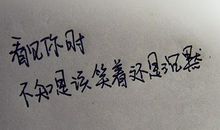 看见你时
不知是该笑着还是沉默